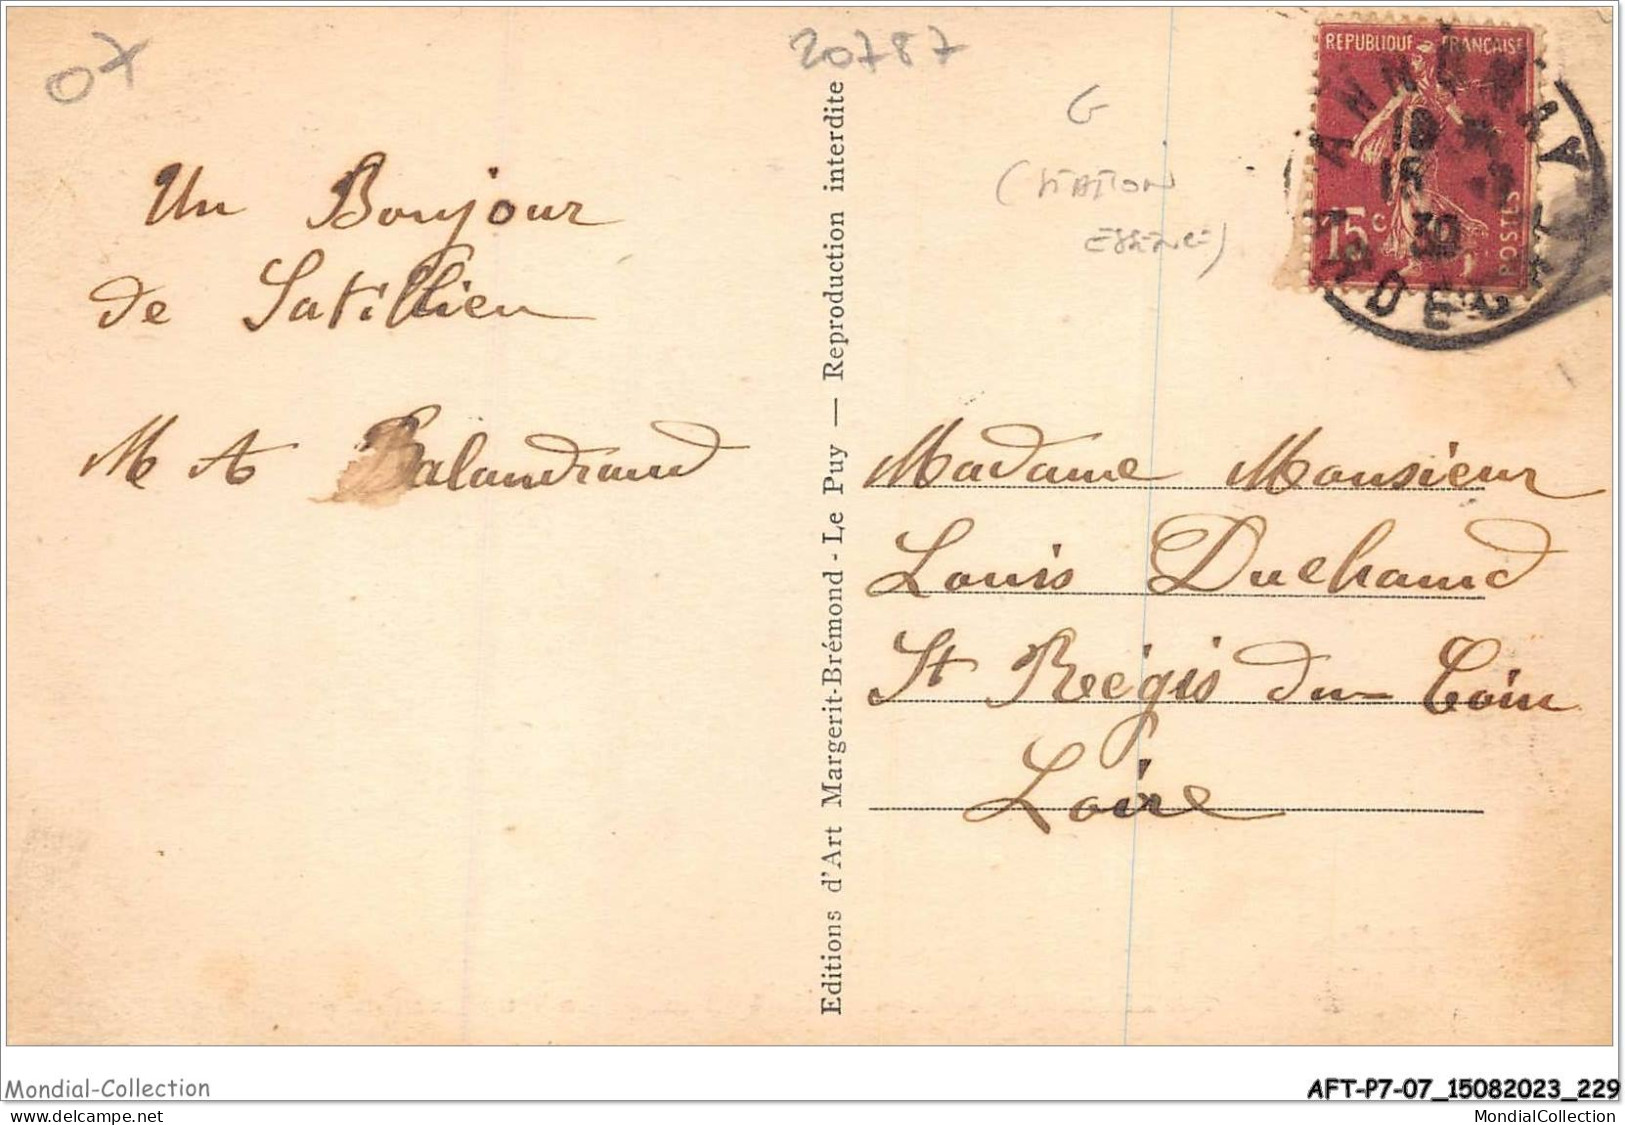 07
20787
G
(station
essence)
REPUBLIQUE FRANÇAISE
15c
POSTES
ANNONAY
18
30
ARDECHE
Un Bonjour
de Satillieu
M A Balandraud
Editions d'Art Margerit-Brémond - Le Puy — Reproduction interdite
Madame Monsieur
Louis Duchaud
St Régis du Coin
Loire
Mondial-Collection
AFT-P7-07_15082023_229
www.delcampe.net
MondialCollection